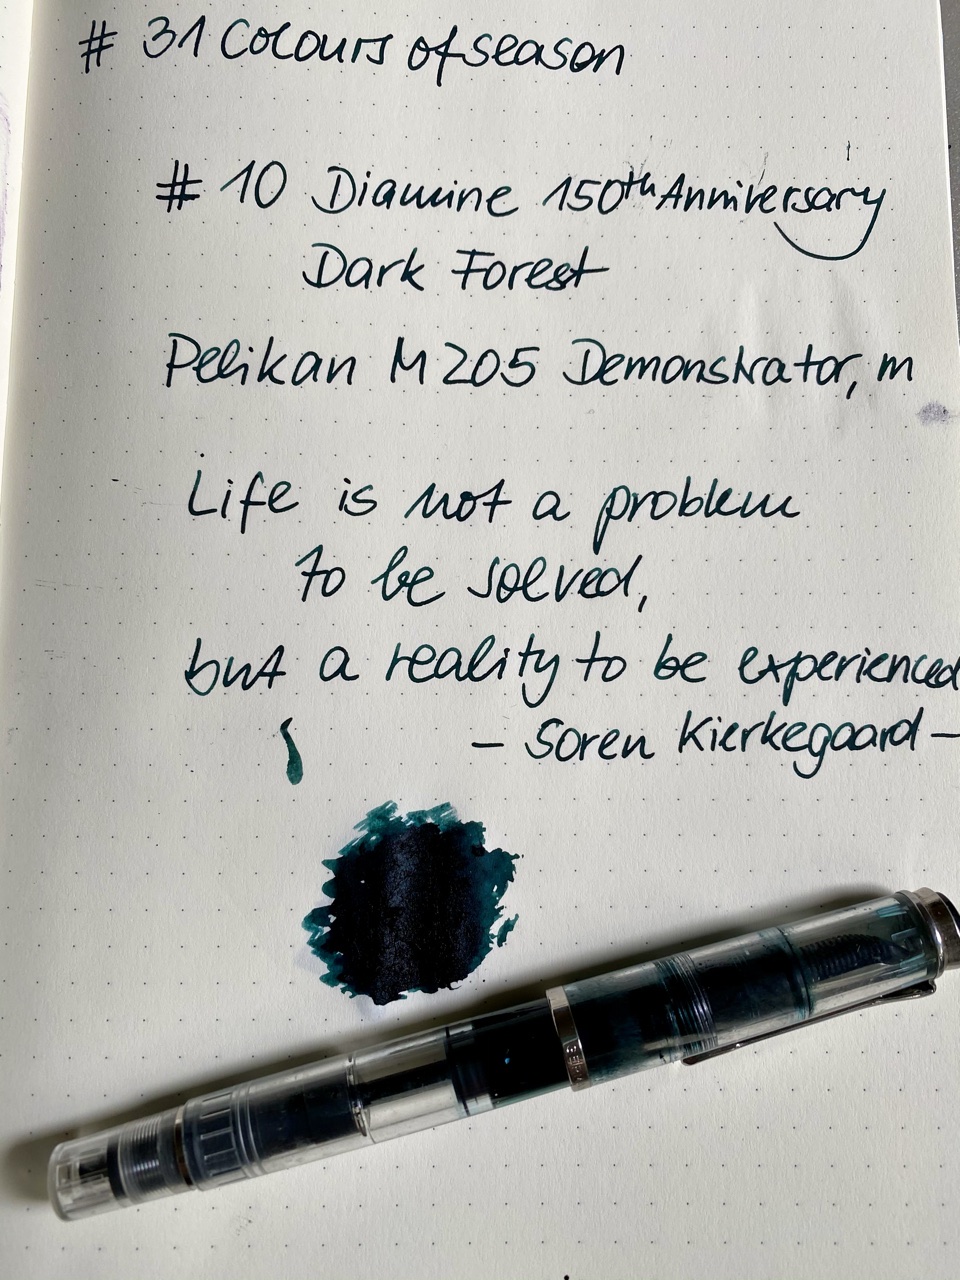 # 31 Colours of season
# 10 Diamine 150th Anniversary
Dark Forest
Pelikan M205 Demonstrator, m
Life is not a problem
to be solved,
but a reality to be experienced
- Soren Kierkegaard -